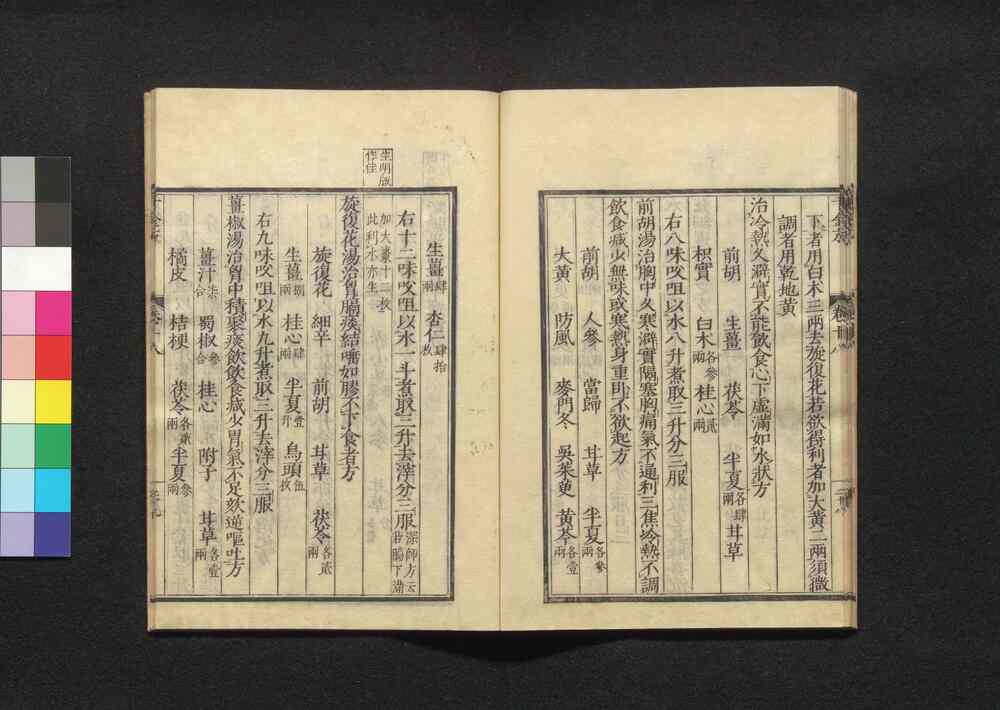 下者用白朮三兩去旋復花若欲得利者加大黃二兩須微
調者用乾地黃
治冷熱久澼實不能飲食心下虛滿如水狀方
前胡 生薑 茯苓 半夏各肆兩 甘草
枳實 白朮各參兩 桂心貳兩
右八味㕮咀以水八升煮取三升分三服
前胡湯治胸中久寒澼實隔塞胸痛氣不通利三焦冷熱不調
飲食減少無味或寒熱身重卧不欲起方
前胡 人參 當歸 甘草 半夏各參兩
大黃 防風 麥門冬 吳茱萸 黃芩各壹兩
生薑肆兩 杏仁肆拾枚
右十二味㕮咀以水一斗煮取三升去滓分三服深師方云若脇下滿
加大棗十二枚此利水亦佳
生明版作佳
旋復花湯治胃膈痰結唾如膠不下食者方
旋復花 細辛 前胡 甘草 茯苓各貳兩
生薑捌兩 桂心肆兩 半夏壹升 烏頭伍枚
右九味㕮咀以水九升煮取三升去滓分三服
薑椒湯治胃中積聚痰飲飲食減少胃氣不足欬逆嘔吐方
薑汁柒合 蜀椒參合 桂心 附子 甘草各壹兩
橘皮 桔梗 茯苓各貳兩 半夏參兩